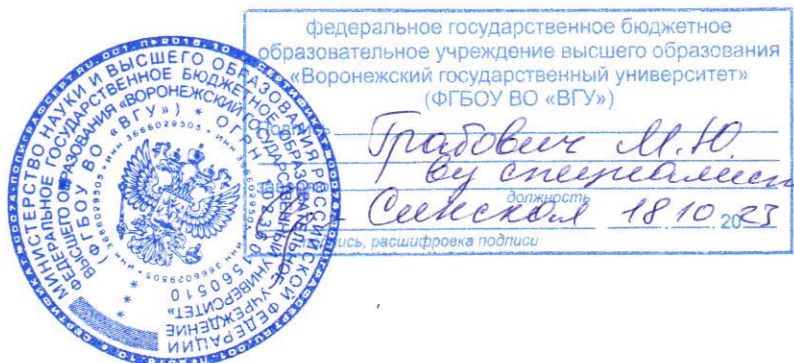 федеральное государственное бюджетное
образовательное учреждение высшего образования
«Воронежский государственный университет»
(ФГБОУ ВО «ВГУ»)
Грабович М.Ю
должность
18 10 2023
расшифровка подписи
МИНИСТЕРСТВО НАУКИ И ВЫСШЕГО ОБРАЗОВАНИЯ РОССИЙСКОЙ ФЕДЕРАЦИИ
ФЕДЕРАЛЬНОЕ ГОСУДАРСТВЕННОЕ БЮДЖЕТНОЕ ОБРАЗОВАТЕЛЬНОЕ УЧРЕЖДЕНИЕ
ВЫСШЕГО ОБРАЗОВАНИЯ «ВОРОНЕЖСКИЙ ГОСУДАРСТВЕННЫЙ УНИВЕРСИТЕТ»
(ФГБОУ ВО «ВГУ») * ОГРН
ИНН 3666029505